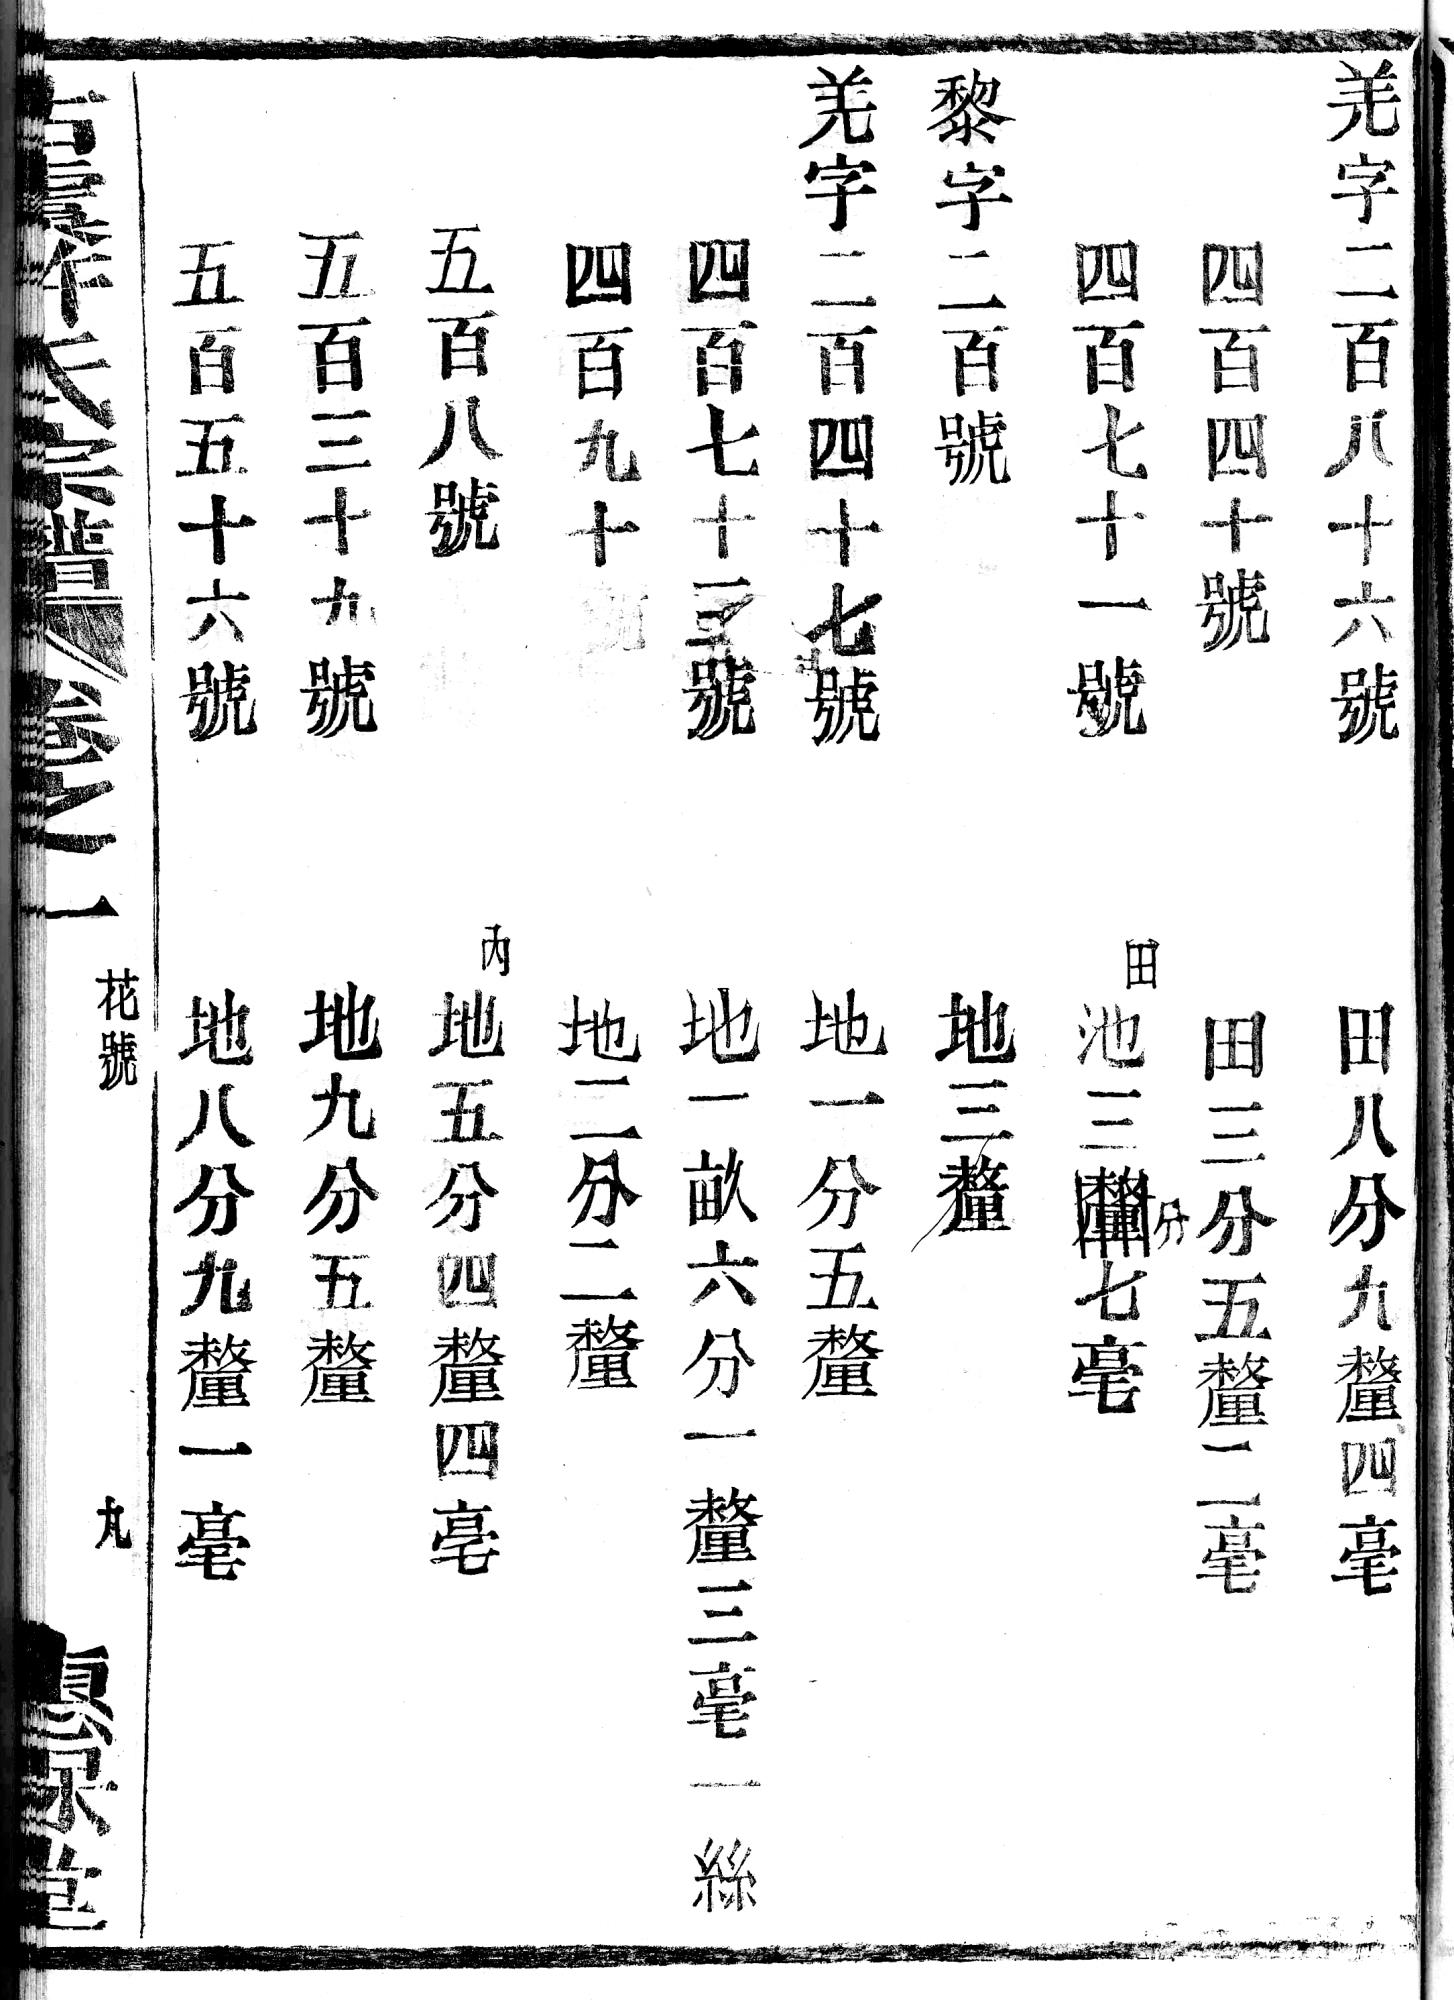 羌字二百八十六號 田八分九釐四毫
四百四十號 田三分五釐二毫
四百七十一號 田池三釐分七毫
黎字二百號 地三釐
羌字二百四十七號 地一分五釐
四百七十三號 地一畝六分一釐三毫一絲
四百九十 地二分二釐
五百八號 內地五分四釐四毫
五百三十九號 地九分五釐
五百五十六號 地八分九釐一毫
氏宗譜 卷之一 花號 九 堂